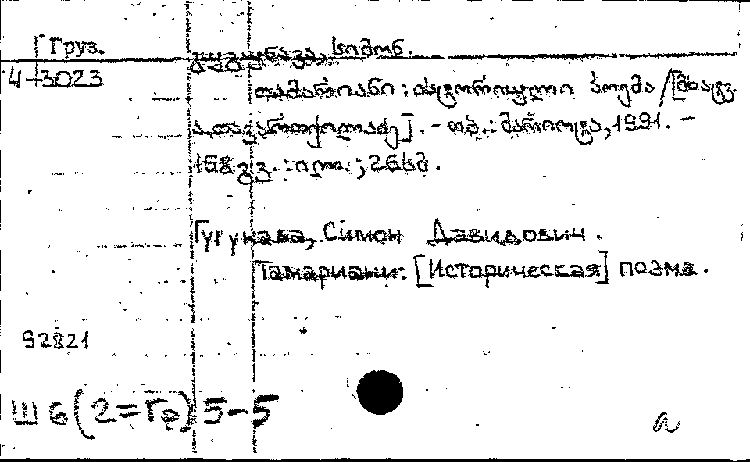 Груз.
4-3023
გუგუნავა, სიმონ.
თამარიანი : ისტორიული პოემა / [მხატვ.
ა. თავართქილაძე]. - თბ. : მერანი, 1991. -
168 გვ. : ილ. ; 26 სმ.
Гугунава, Симон Давидович.
Тамариани: [Историческая] поэма.
92821
Ш6(2=Гр)5-5
а